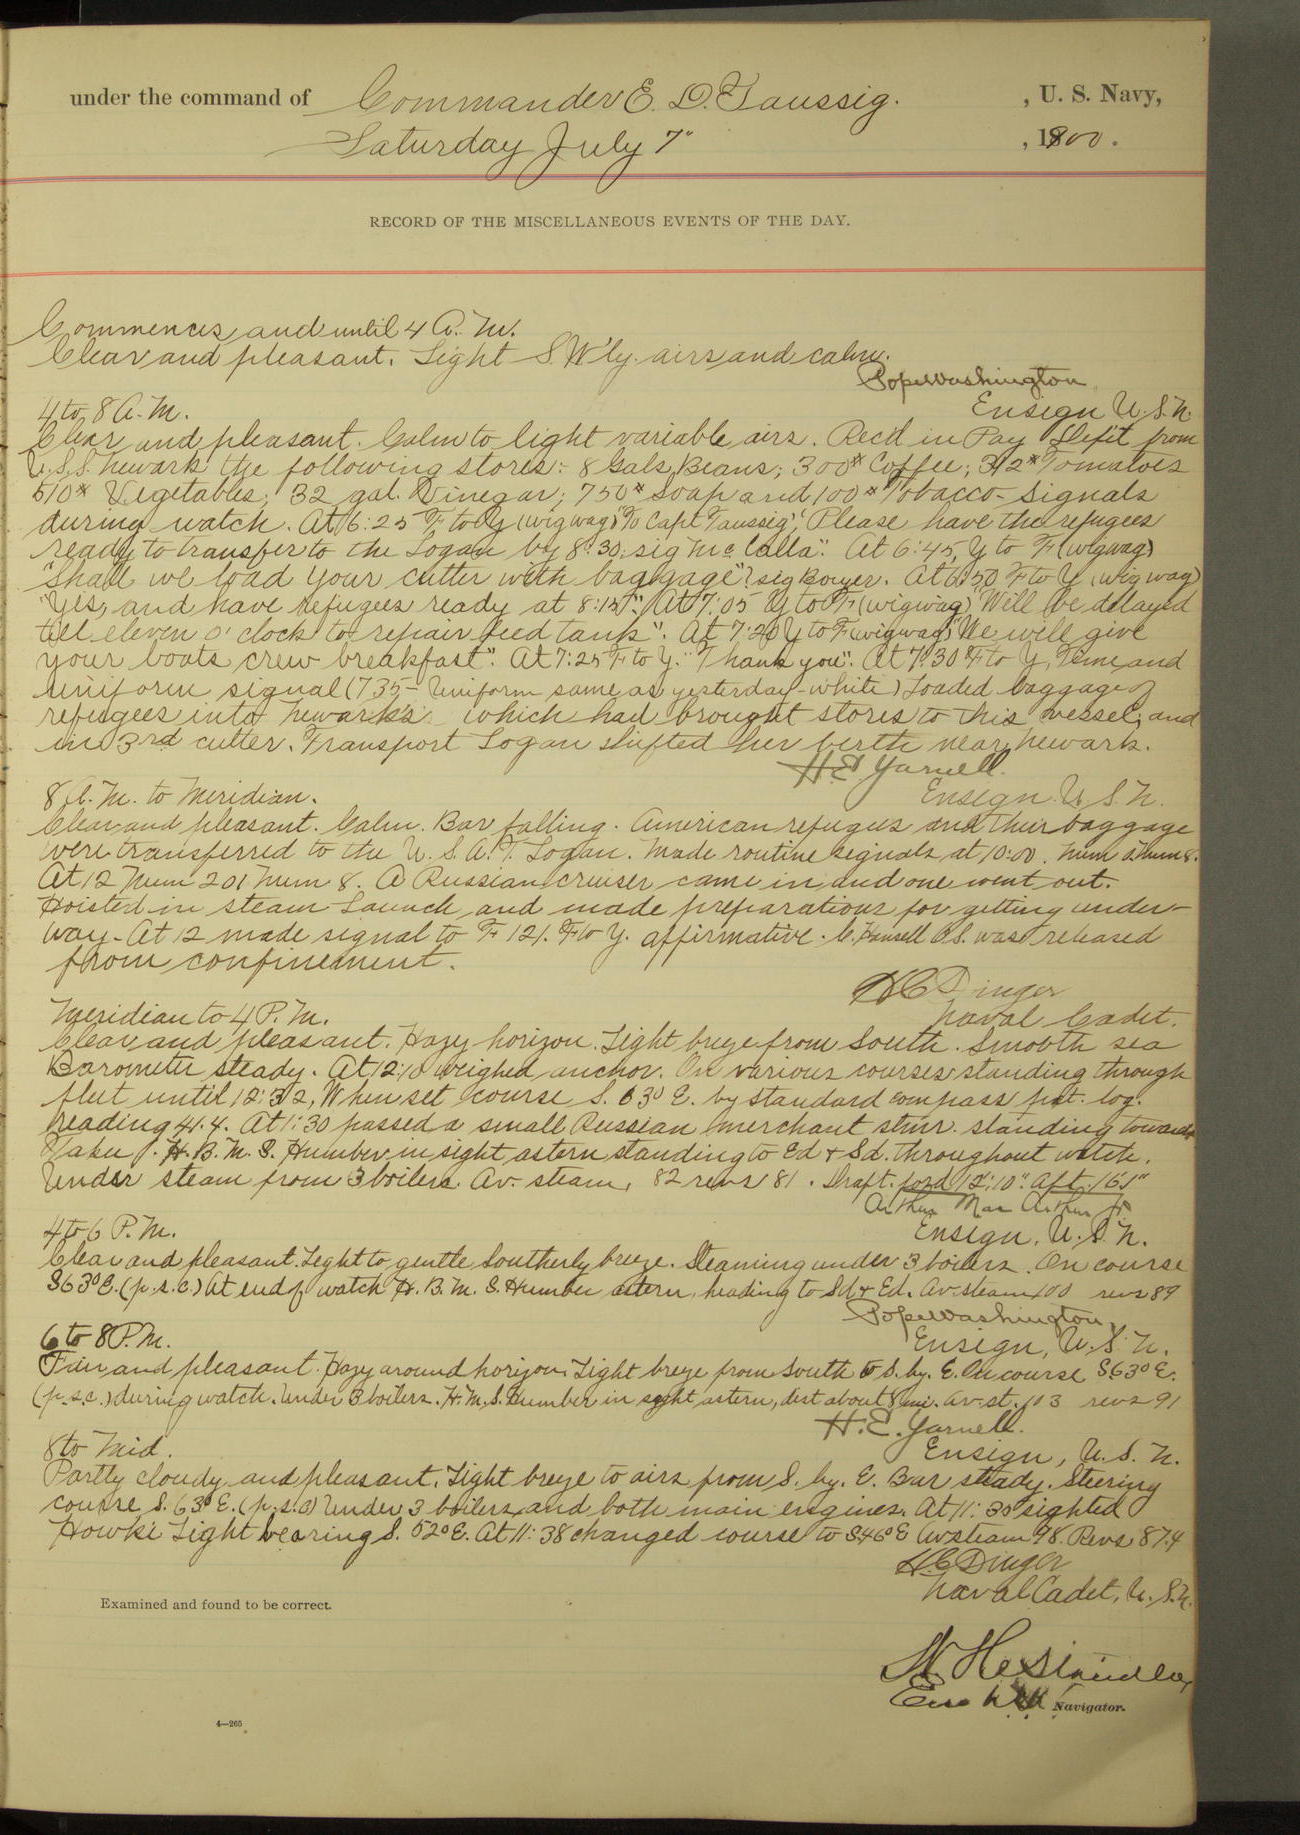 under the command of Commander E. D. Taussig. , U. S. Navy,
Saturday July 7" , 1900.
RECORD OF THE MISCELLANEOUS EVENTS OF THE DAY.
Commences and until 4 A. M.
Clear and pleasant. Light S. W'ly. airs and calm.
Pope Washington
Ensign U. S. N.
4 to 8 A. M.
Clear and pleasant. Calm to light variable airs. Rec'd in Pay Dep't from
U.S.S. Newark the following stores:- 8 Gals Beans; 300# Coffee; 312# Tomatoes
510# Vegetables; 32 gal. Vinegar; 750# Soap and 100# Tobacco- Signals
during watch. At 6:25 F to Y (wigwag) "To Capt Taussig", Please have the refugees
ready to transfer to the Logan by 8:30, sig McCalla". At 6:45, Y to F (wigwag)
"Shall we load your cutter with baggage"? sig Bowyer. At 6:50 F to Y (wigwag)
"Yes, and have refugees ready at 8:15". At 7:05 Y to F (wigwag) "Will be delayed
till eleven o'clock to repair feed tank". At 7:20 Y to F (wigwag) "We will give
your boats crew breakfast". At 7:25 F to Y. "Thank you". At 7:30 F to Y, Time and
uniform signal (735- Uniform same as yesterday-white) Loaded baggage of
refugees into Newark's which had brought stores to this vessel, and
in 3rd cutter. Transport Logan shifted her berth near Newark.
H. E. Yarnell.
Ensign U. S. N.
8 A. M. to Meridian.
Clear and pleasant. Calm. Bar falling. American refugees and their baggage
were transferred to the U. S. A. T. Logan. Made routine signals at 10:00. Num 8.
At 12 Num 201 Num 8. A Russian cruiser came in and one went out.
Hoisted in steam Launch and made preparations for getting under-
way- At 12 made signal to F 121. F to Y. affirmative. C. Hansell was released
from confinement.
H C Dinger
Naval Cadet.
Meridian to 4 P. M.
Clear and pleasant. Hazy horizon. Light breeze from South. Smooth sea
Barometer steady. At 12:10 weighed anchor. On various courses standing through
fleet until 12:32, When set course S. 63° E. by standard compass pat. log.
reading 41.4. At 1:30 passed a small Russian merchant stmr. standing towards
Taku. H. B. M. S. Humber in sight astern standing to Ed + Sd. throughout watch.
Under steam from 3 boilers. Av. steam, 82 revs 81. Draft. ford 12' 10" aft. 16' 1"
Arthur Mac Arthur Jr.
Ensign, U. S. N.
4 to 6 P. M.
Clear and pleasant. Light to gentle Southerly breeze. Steaming under 3 boilers. On course
S63°E. (p.s.c.) At end of watch H. B. M. S. Humber astern, heading to Sd + Ed. Av steam 100 revs 89
Pope Washington,
Ensign, U. S. N.
6 to 8 P. M.
Fair and pleasant. Hazy around horizon. Light breeze from South to S. by. E. On course S63° E.
(p.s.c.) during watch. Under 3 boilers. H. M. S. Humber in sight astern, dist about 8 mi. Av. st. 103 revs 91
H. E. Yarnell.
Ensign, U. S. N.
8 to Mid.
Partly cloudy and pleasant. Light breeze to airs from S. by. E. Bar steady. Steering
course S. 63° E. (p.s.c) Under 3 boilers and both main engines. At 11:30 sighted
Howki Light bearing S. 52° E. At 11:38 changed course to S46°E Av steam 98. Revs 87.4
H. C. Dinger
Naval Cadet, U. S. N.
Examined and found to be correct.
W. H. Standley
Navigator.
4—265